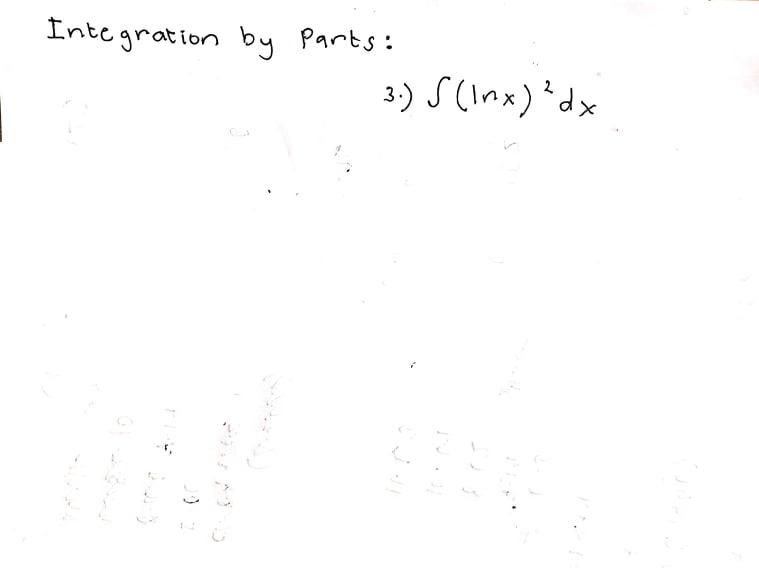 Integration by Parts:
3.) ∫(lnx)²dx